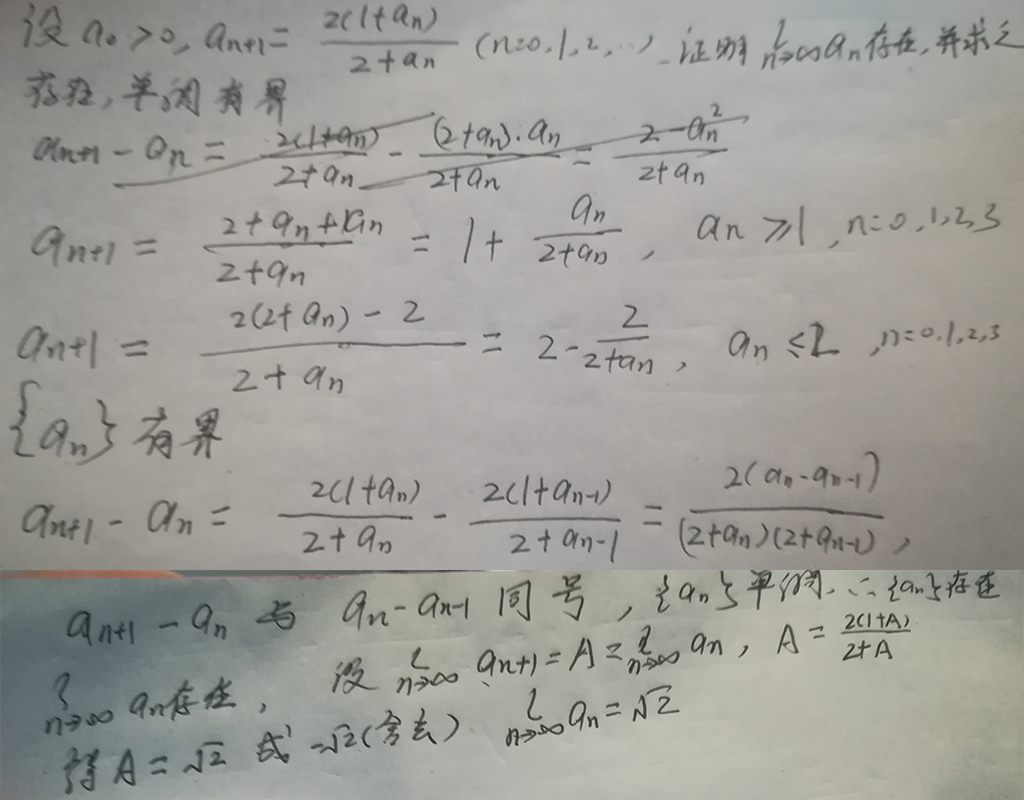 设 a₀>0, aₙ₊₁ = 2(1+aₙ)/(2+aₙ) (n=0,1,2,…) 证明 l n→∞ aₙ存在, 并求之
存在, 单调有界
aₙ₊₁ - aₙ = 2(1+aₙ)/(2+aₙ) - (2+aₙ)·aₙ/(2+aₙ) = (2-aₙ²)/(2+aₙ)
aₙ₊₁ = (2+aₙ+aₙ)/(2+aₙ) = 1 + aₙ/(2+aₙ), aₙ ≥1, n=0,1,2,3
aₙ₊₁ = (2(2+aₙ)-2)/(2+aₙ) = 2 - 2/(2+aₙ), aₙ ≤2, n=0.1,2,3
{aₙ} 有界
aₙ₊₁ - aₙ = 2(1+aₙ)/(2+aₙ) - 2(1+aₙ₋₁)/(2+aₙ₋₁) = 2(aₙ-aₙ₋₁)/((2+aₙ)(2+aₙ₋₁)),
aₙ₊₁ - aₙ 与 aₙ - aₙ₋₁ 同号, {aₙ}单调. ∴{aₙ}存在
l n→∞ aₙ存在, 设 l n→∞ aₙ₊₁ = A = l n→∞ aₙ, A = 2(1+A)/(2+A)
得 A = √2 或 -√2(舍去) l n→∞ aₙ = √2